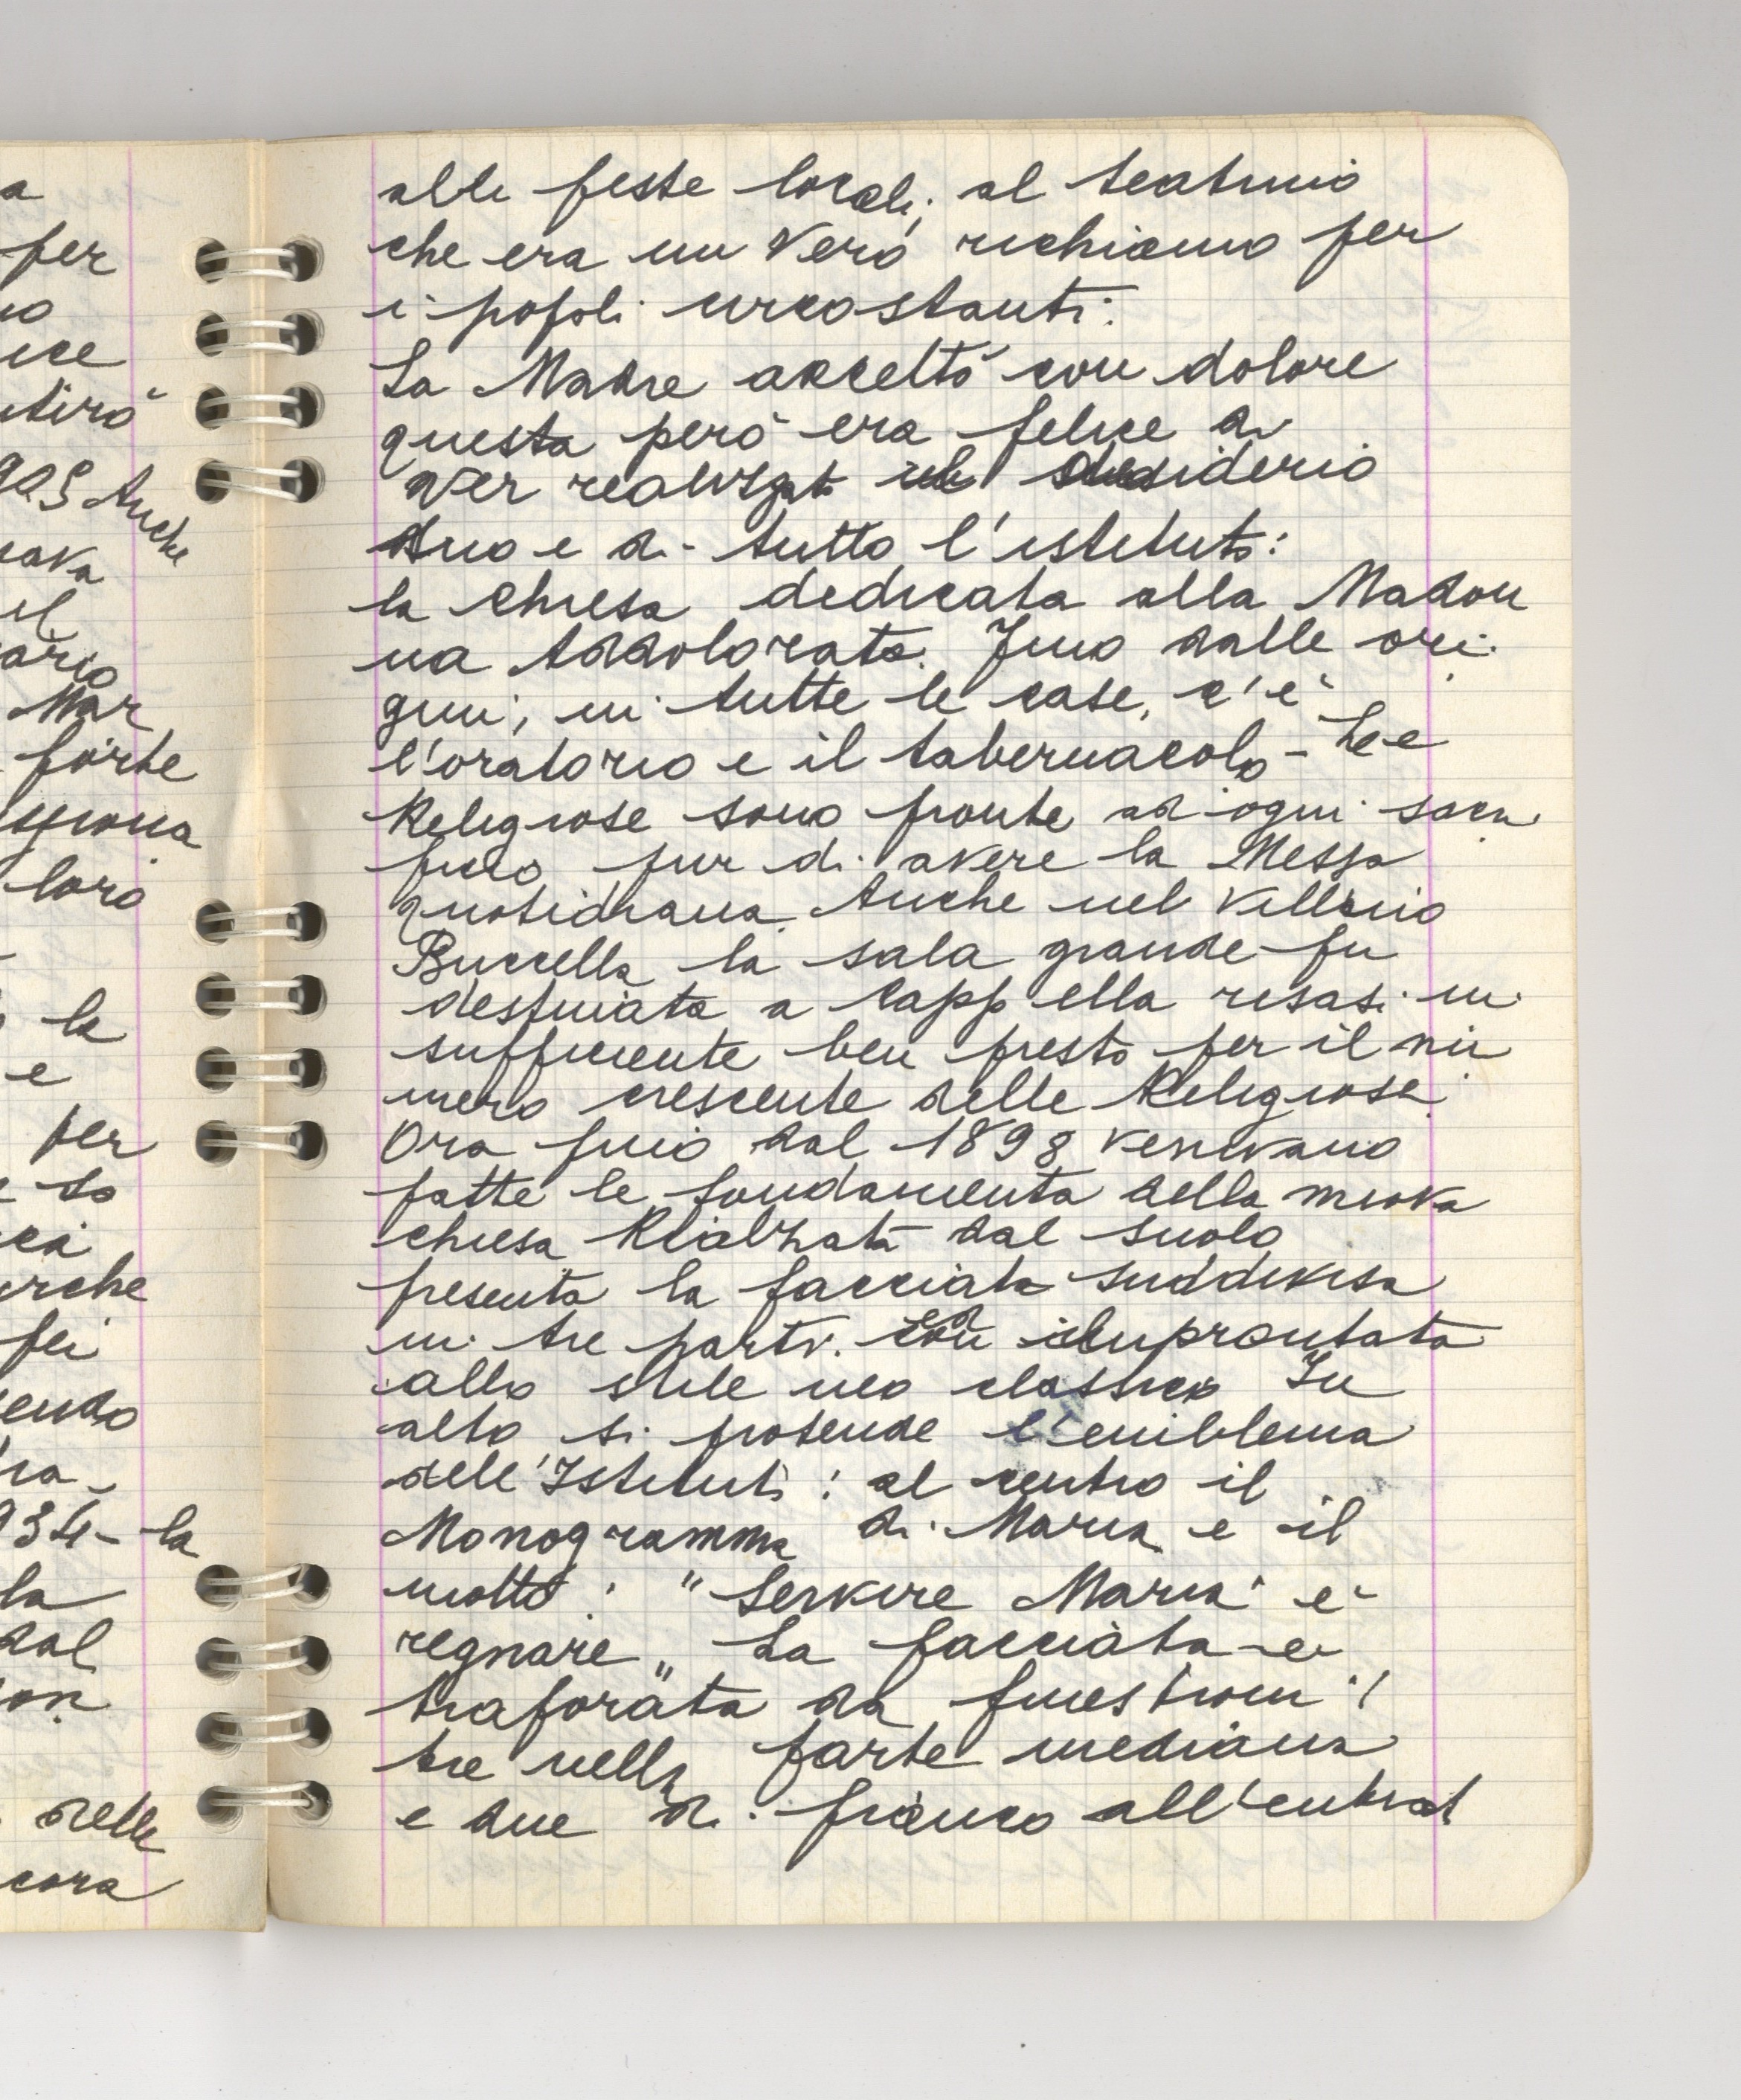 a
per
no
ice
tirò
905 Anche
rava
il
ario
Mar
forte
loro
la
e
per
so
rche
fei
endo
934- la
la
dal
delle
cora
alle feste locali, al teatrino
che era un vero richiamo per
i popoli circostanti.
La Madre accettò con dolore
questa però era felice di
ver realizzato il desiderio
suo e di tutto l'istituto:
la Chiesa dedicata alla Madon
na Addolorata. Fino dalle ori
gini, in tutte le case, c'è
l'oratorio e il tabernacolo - Le
Religiose sono pronte ad ogni sacri
ficio pur di avere la Messa
quotidiana. Anche nel Villino
Buccella la sala grande fu
destinata a Cappella resasi in
sufficiente ben presto per il nu
mero crescente delle Religiose.
Ora fino dal 1898 venivano
fatte le fondamenta della nuova
chiesa Rialzata dal suolo
presenta la facciata suddivisa
in tre parti. ed improntata
allo stile neo classico In
alto si protende l'emblema
dell'Istituto: al centro il
Monogramma di Maria e il
motto: "Servire Maria è
regnare" La facciata è
traforata da finestroni:
tre nella parte mediana
e due di fianco all'entrat